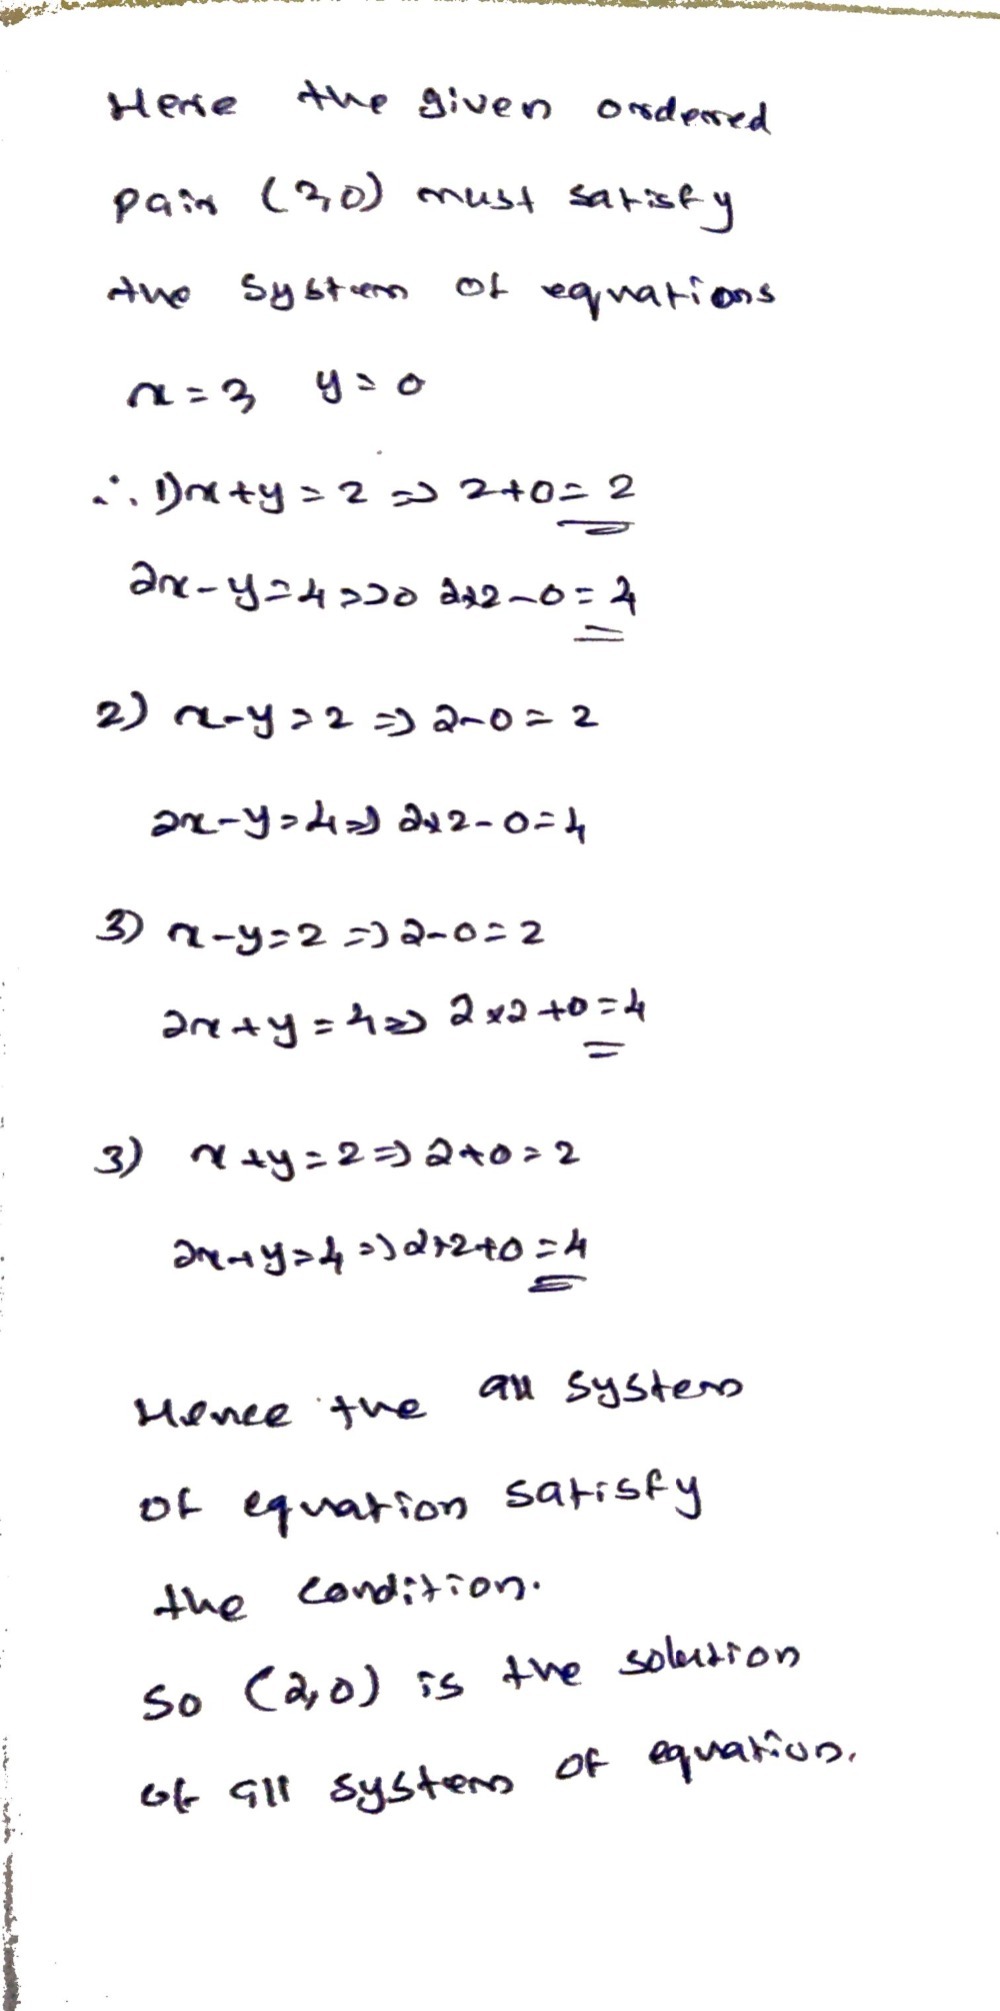 Here the given ordered
pair (3,0) must satisfy
the system of equations
x = 3 y = 0
∴ 1) x + y = 2 ⇒ 2+0 = 2
2x - y = 4 ⇒ 2×2 - 0 = 4
2) x - y = 2 ⇒ 2-0 = 2
2x - y = 4 ⇒ 2×2 - 0 = 4
3) x - y = 2 ⇒ 2-0 = 2
2x + y = 4 ⇒ 2×2 + 0 = 4
3) x + y = 2 ⇒ 2+0 = 2
2x + y = 4 ⇒ 2×2+0 = 4
Hence the all system
of equation satisfy
the condition.
So (2,0) is the solution
of all system of equation.